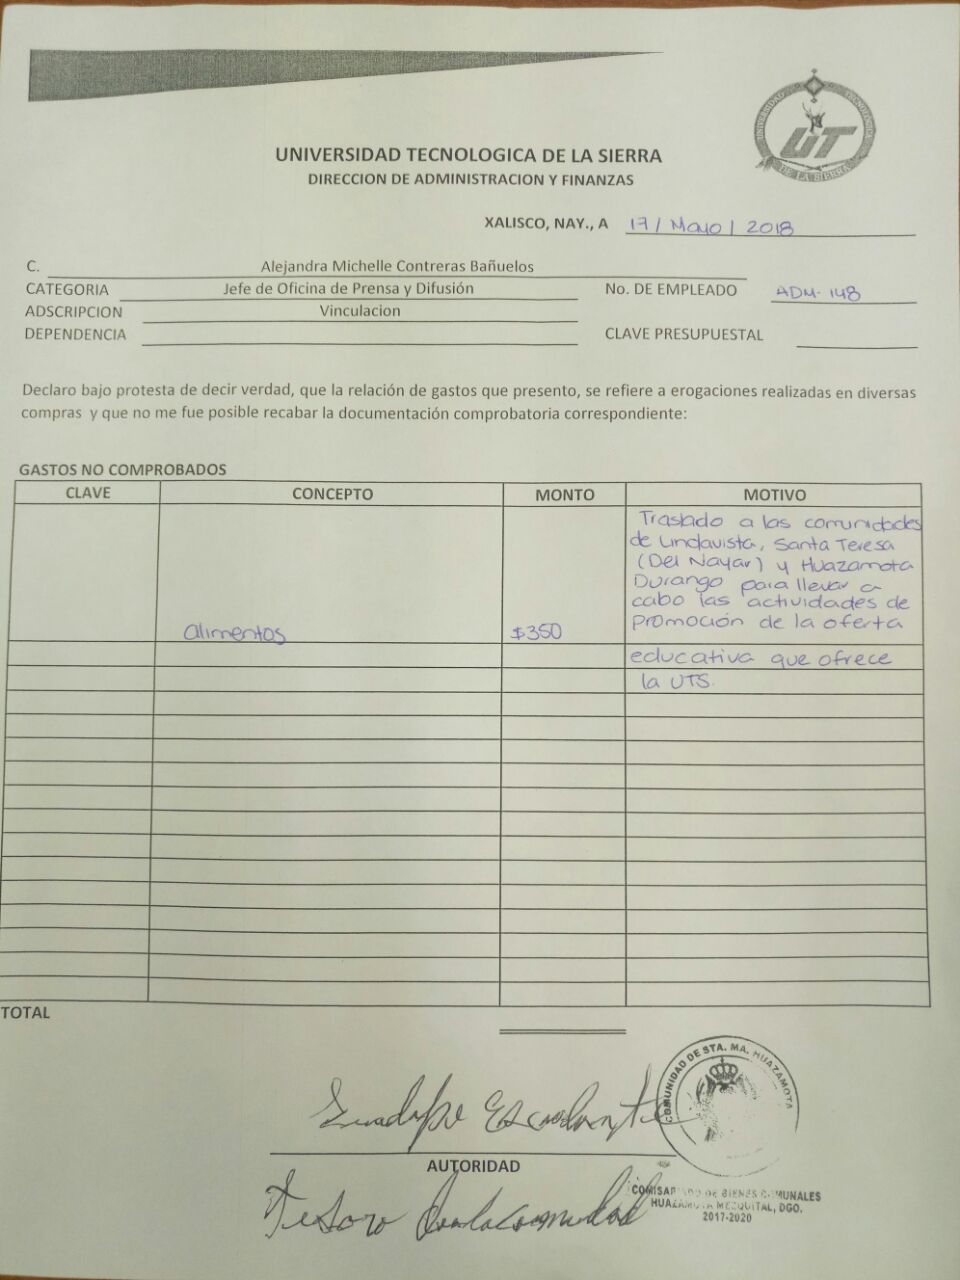 UNIVERSIDAD TECNOLOGICA DE LA SIERRA
UT
UNIVERSIDAD TECNOLOGICA DE LA SIERRA
DIRECCION DE ADMINISTRACION Y FINANZAS
XALISCO, NAY., A 17 / Mayo / 2018
C. Alejandra Michelle Contreras Bañuelos
CATEGORIA Jefe de Oficina de Prensa y Difusión No. DE EMPLEADO ADM-148
ADSCRIPCION Vinculacion
DEPENDENCIA CLAVE PRESUPUESTAL
Declaro bajo protesta de decir verdad, que la relación de gastos que presento, se refiere a erogaciones realizadas en diversas
compras y que no me fue posible recabar la documentación comprobatoria correspondiente:
GASTOS NO COMPROBADOS
CLAVE CONCEPTO MONTO MOTIVO
Traslado a las comunidades
de Lindavista, Santa Teresa
(Del Nayar) y Huazamota
Durango para llevar a
cabo las actividades de
alimentos $350 promoción de la oferta
educativa que ofrece
la UTS.
TOTAL
COMUNIDAD DE STA. MA. HUAZAMOTA
Guadalupe Escalante
AUTORIDAD
Tesoro
COMISARIADO DE BIENES COMUNALES
HUAZAMOTA MEZQUITAL, DGO.
2017-2020